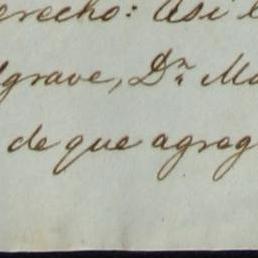 erecho: Así l
lgrave, Dn. Ma
de que agreg